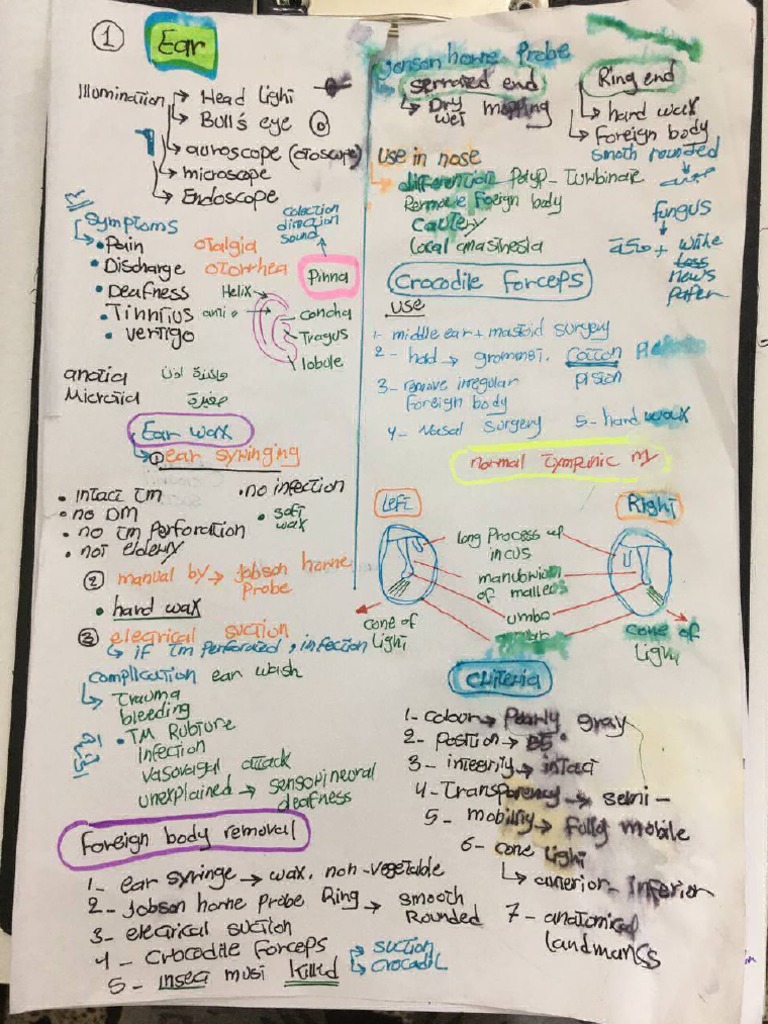 1 Ear
Illumination → Head light
→ Bull's eye
→ auroscope (otoscope)
→ microscope
→ Endoscope
Symptoms
• Pain otalgia
• Discharge otorrhea
• Deafness
• Tinnitus
• vertigo
direction
sound
Pinna
Helix
anti
concha
Tragus
lobule
anotia
Microtia صغيرة
Ear wax
① ear syringing
• intact TM • no infection
• no DM • soft wax
• no TM perforation
• not elderly
② manual by → Jobson horne Probe
• hard wax
③ elecrical suction
↳ if TM perforated, infection
complication ear wash
↳ Trauma
bleeding
• TM Rubture
infection
vasovagal attack
unexplained → sensorineural deafness
Foreign body removal
1- ear syringe → wax, non-vegetable
2- Jobson horne Probe Ring → smooth Rounded
3- elecrical suction
4- Crocodile Forceps
5- insect must killed → suction
→ crocadil
Jonson horne Probe
serrated end
↳ Dry wet mopping
Ring end
↳ hard wax
→ Foreign body
smoth rounded
use in nose
→ differention Polyp - Turbinate
Remove Foreign body
cautery
local anasthesia
fungus
+ white
news
paper
Crocodile Forceps
use
1- middle ear + mastoid surgery
2- hold → grommet, cotton
pision
3- remove irregular foreign body
4- Nasal surgery 5- hard wax
normal tympinic m
Left
Right
long Process of incus
manubrium of malleus
umbo
cone of light
cone of light
Criteria
1- colour → Pearly gray
2- position → 55°
3- integrity → intact
4- Transparency → semi-
5- mobility → fully mobile
6- cone light
↳ anterior- inferior
7- anatomical landmarks